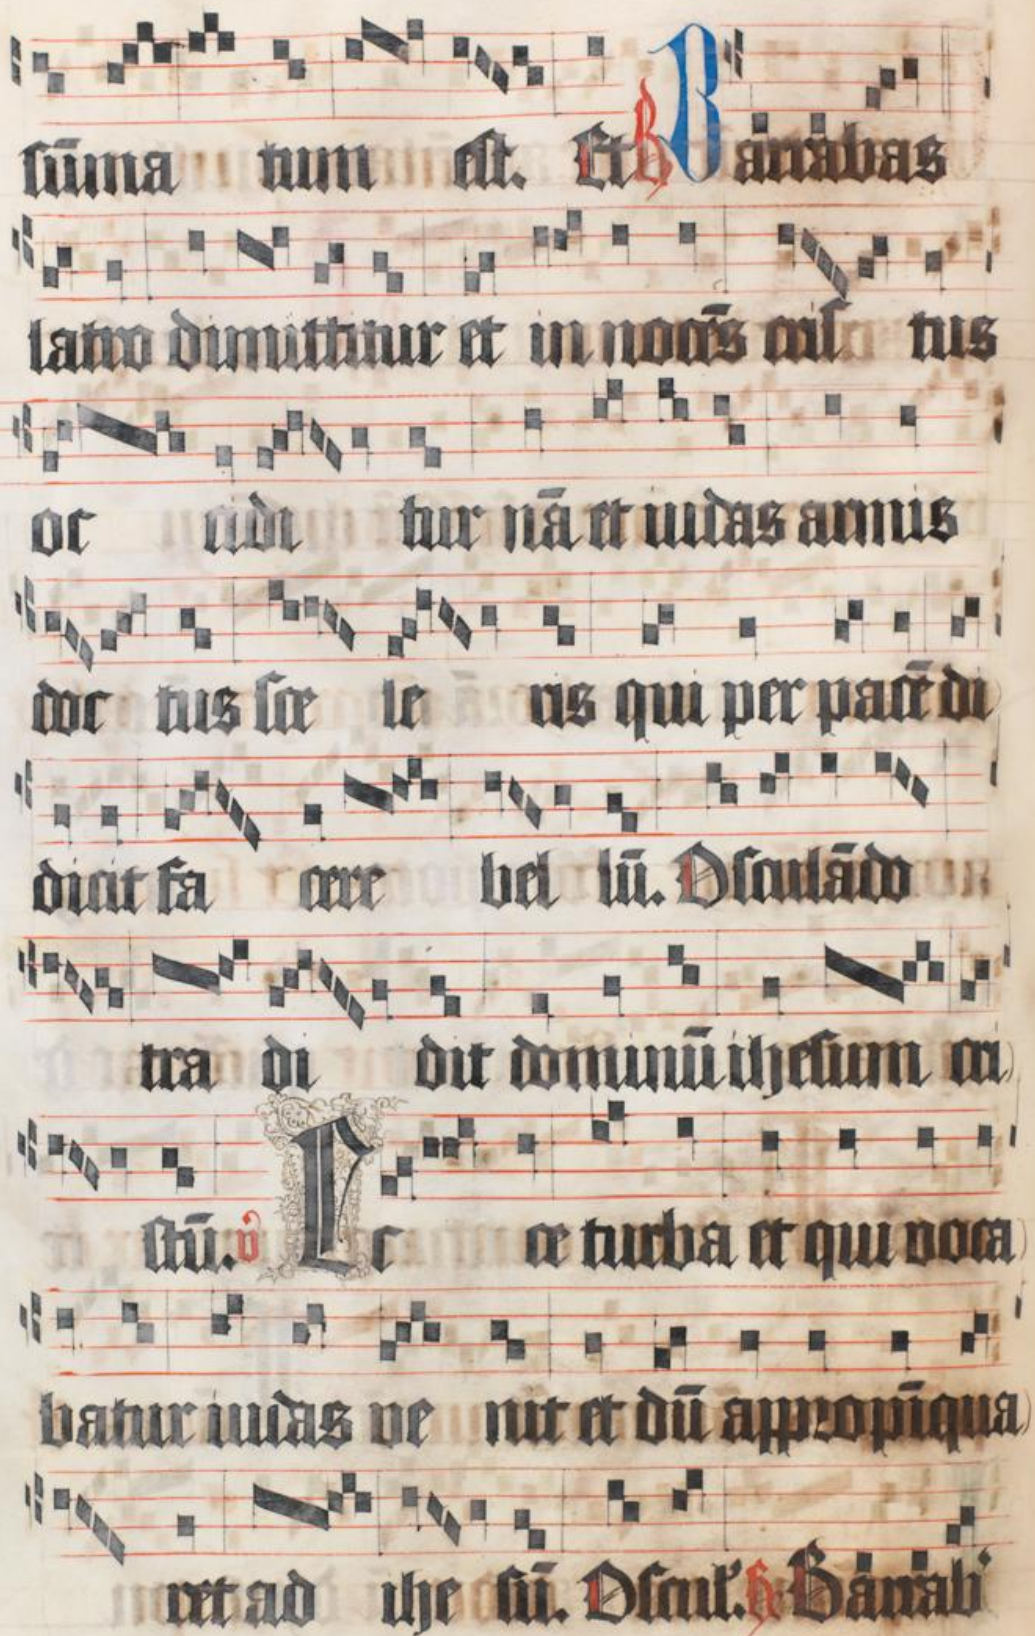 sūma tum est. Et R Barrabas
latro dimittitur et in nocēs cris tus
oc cidi tur nā et iudas armis
doc tus sce le ris qui per pacē di
dicit fa cere bel lū. Osculādo
tra di dit dominū ihesum cri
stū. v Ec ce turba et qui voca
batur iudas ve nit et dū appropīqua
ret ad ihe sū. Oscul'. R Barrab'